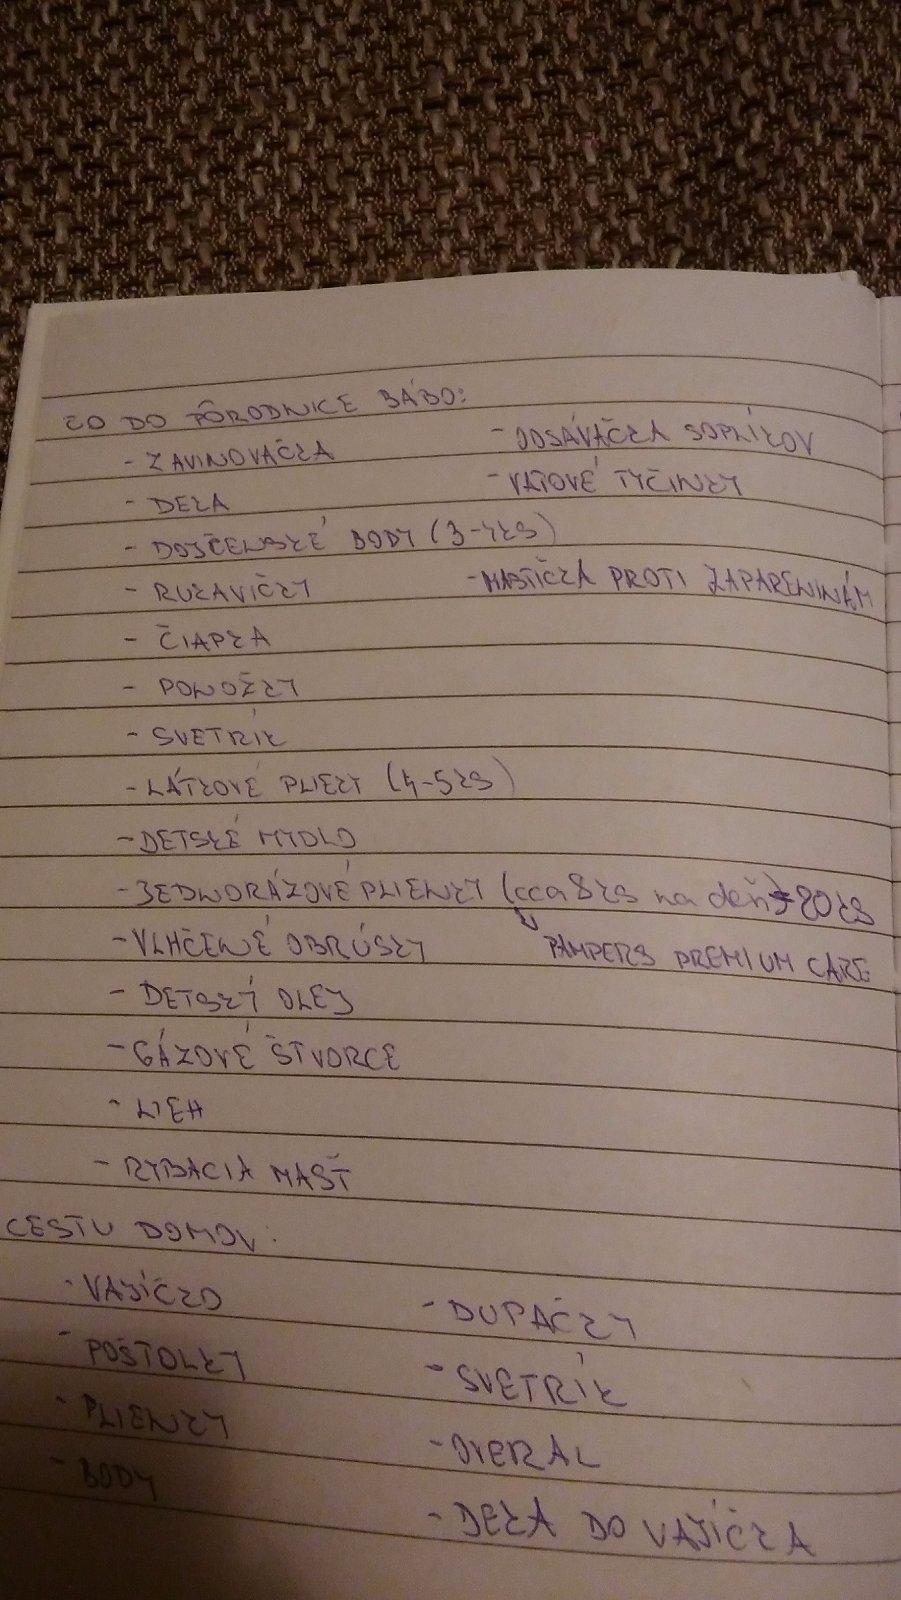 ČO DO PÔRODNICE BÁBO:
- ZAVINOVAČKA
- DEKA
- DOJČENSKÉ BODY (3-4KS)
- RUKAVIČKY
- ČIAPKA
- PONOŽKY
- SVETRÍK
- LÁTKOVÉ PLIEKY (4-5KS)
- DETSKÉ MYDLO
- JEDNORÁZOVÉ PLIENKY (cca 8ks na deň) 20KS
PAMPERS PREMIUM CARE
- VLHČENÉ OBRÚSKY
- DETSKÝ OLEJ
- GÁZOVÉ ŠTVORCE
- LIEH
- RYBACIA MASŤ
- ODSÁVAČKA SOPLÍKOV
- VATOVÉ TYČINKY
- MASTIČKA PROTI ZAPARENINÁM
CESTU DOMOV:
- VAJÍČKO
- POŠTOLKY
- PLIENKY
- BODY
- DUPAČKY
- SVETRÍK
- OVERAL
- DEKA DO VAJÍČKA